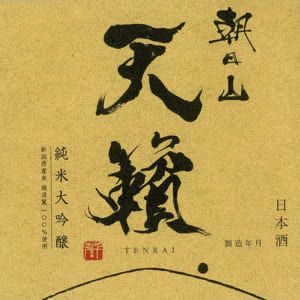 朝日山
天籟
TENRAI
純米大吟醸
新潟県産米 越淡麗 一〇〇%使用
日本酒
製造年月